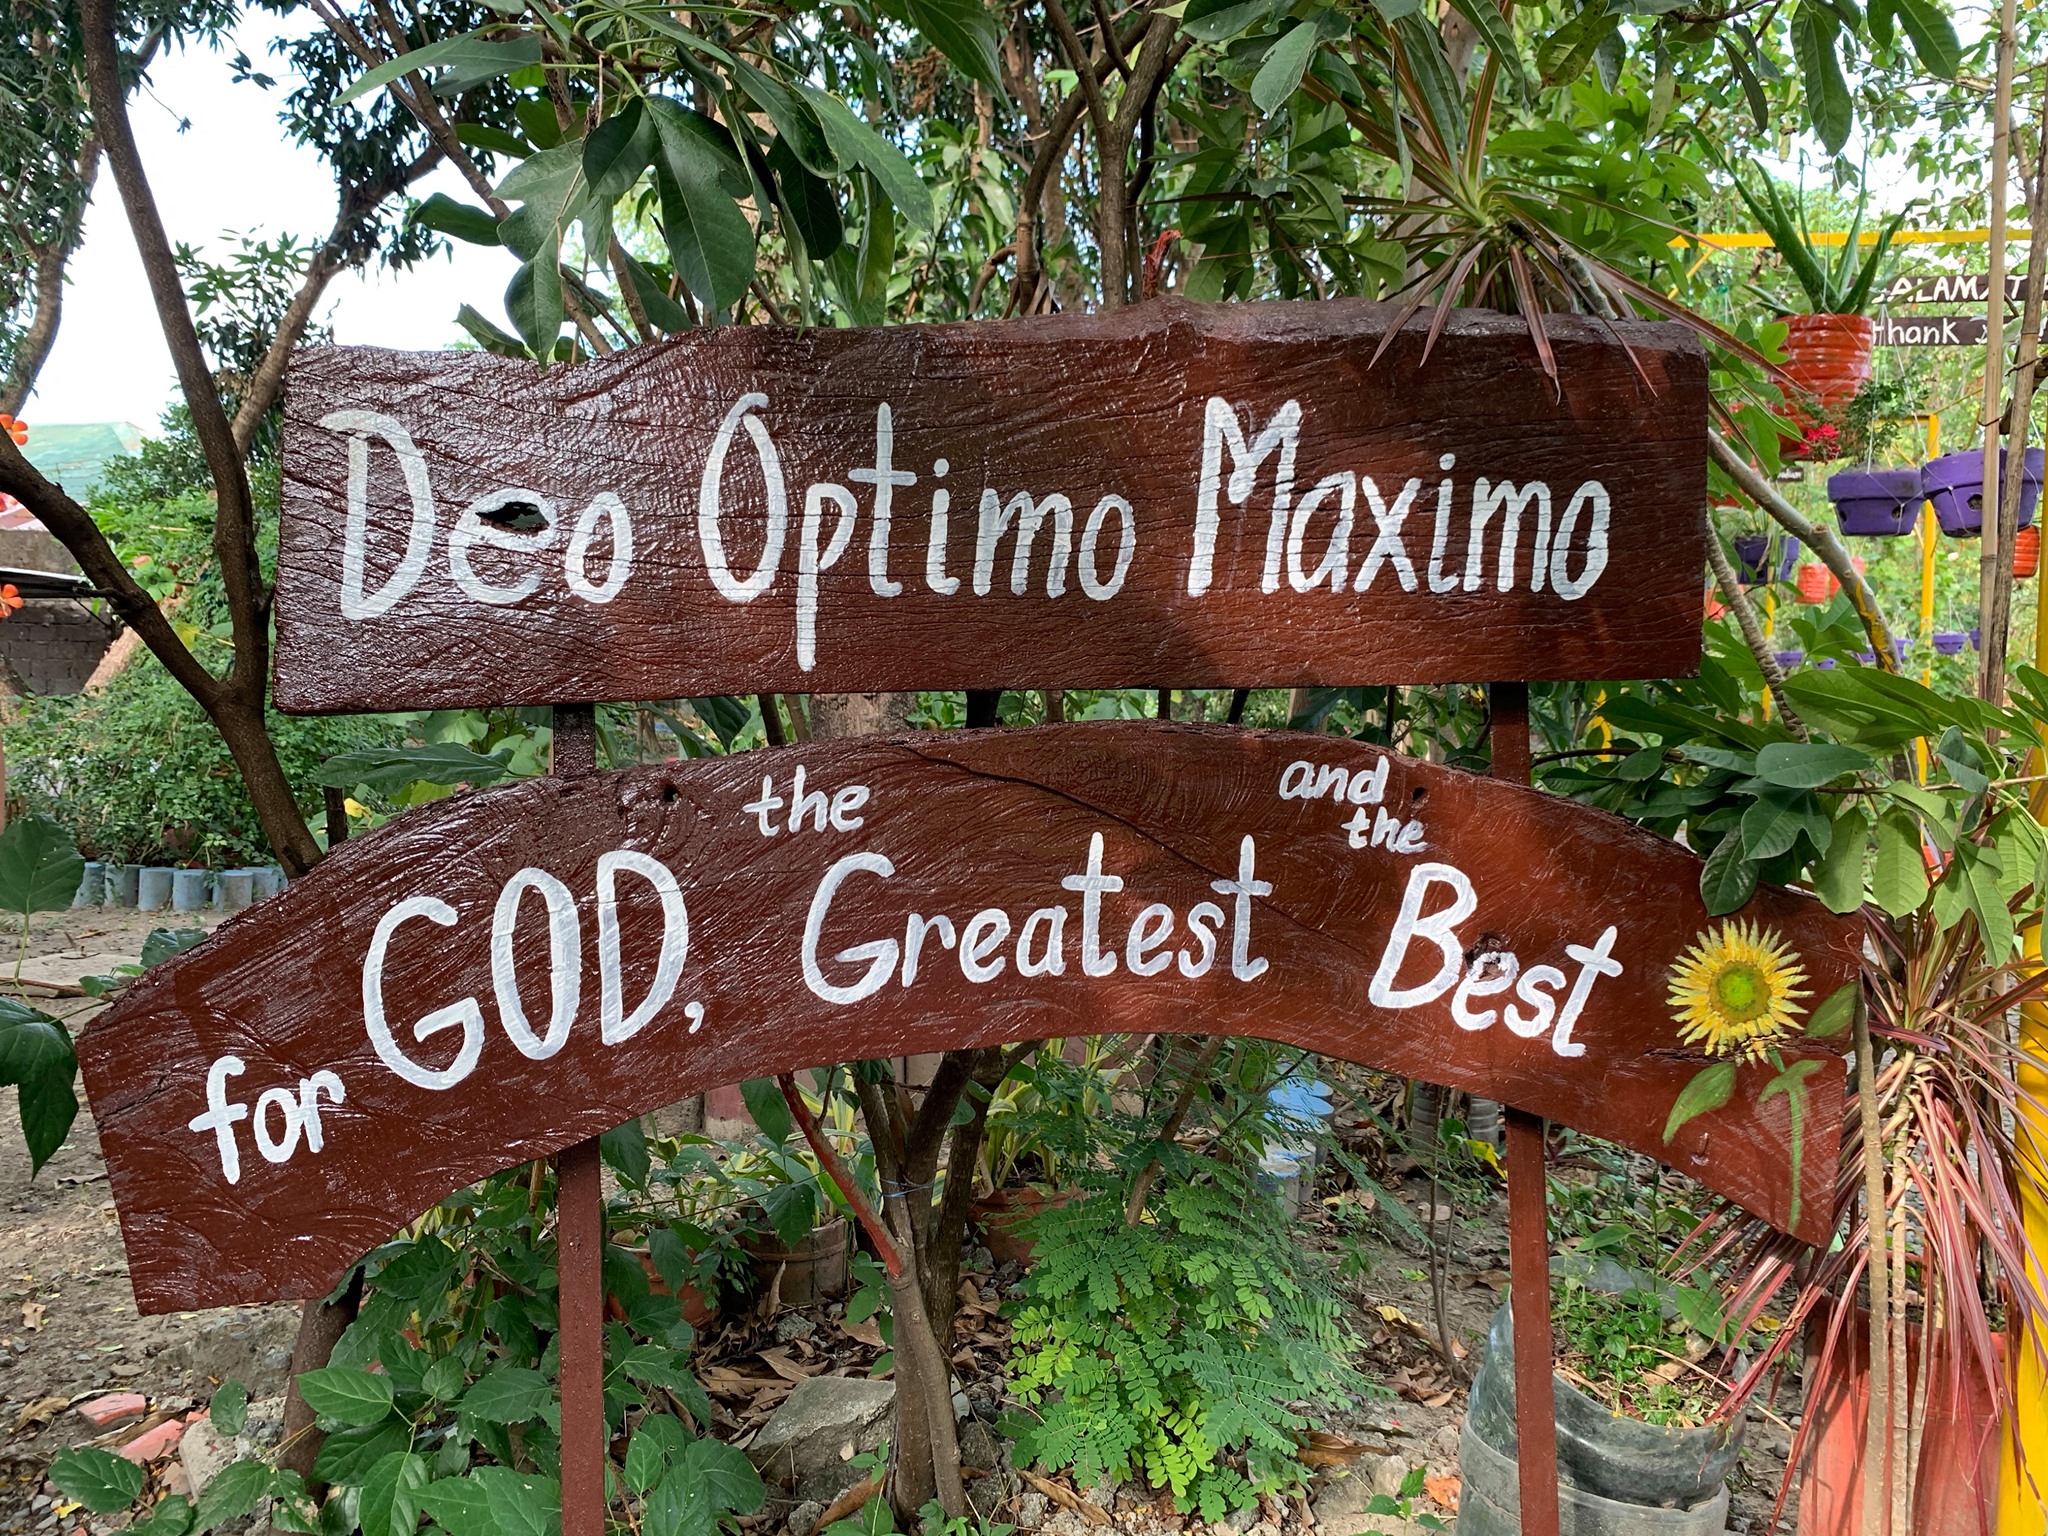 Deo Optimo Maximo
for GOD, the Greatest and the Best
thank